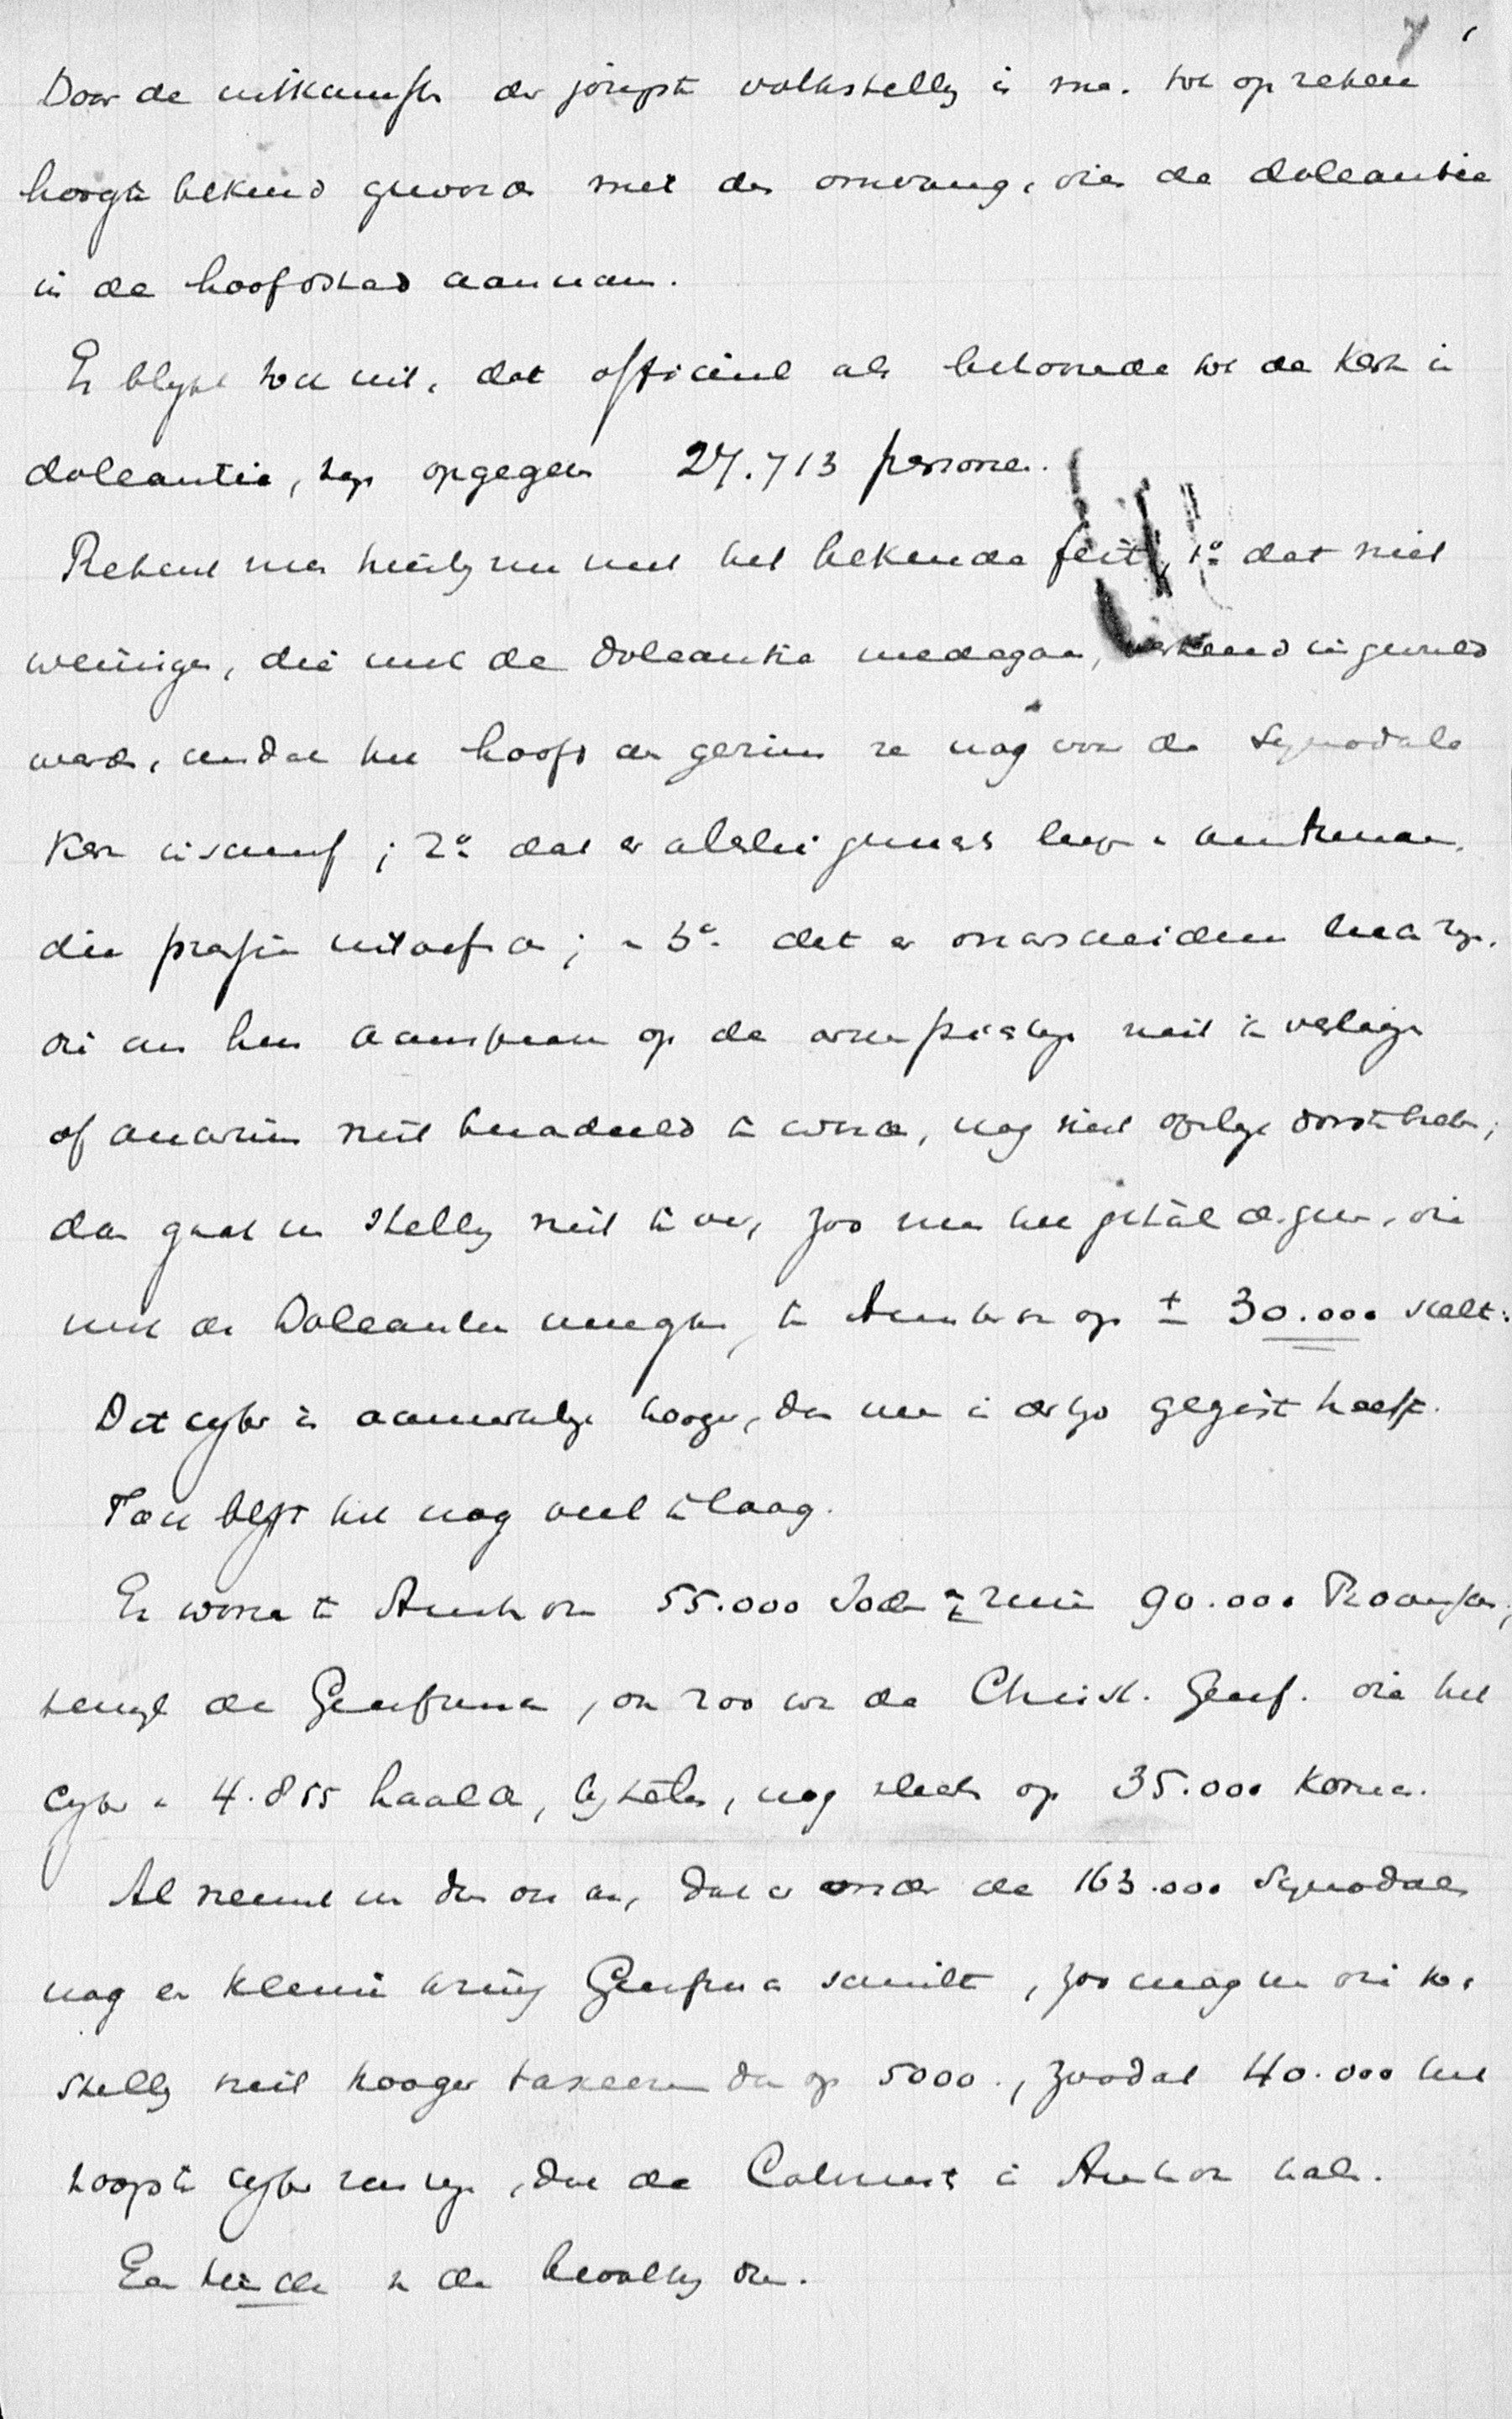 Door de uitkomsten der jongste volkstelling is men tot op zekere
hoogte bekend geworden met den omvang, dien de doleantie
in de hoofdstad aannam.
Er blijkt toch uit, dat officieel als behoorende tot de Kerk in
doleantie, zijn opgegeven 27.713 personen.
Rekent men hierbij nu met het bekende feit, 1o dat niet
weinigen, die met de doleantie medegaan, verkeerd ingevuld
werden, omdat het hoofd des gezins ze nog voor de Synodale
Kerk inschreef; 2o dat er allerlei
die pressie uitoefenen; en 3o dat er onderscheidene leden zijn,
die om hun aanspraken op de niet te verliezen
of anderszins niet benadeeld te worden, nog niet dorsten;
dan gaat men stellig niet te ver, zoo men het getal dergenen, die
met de Doleantie meegaan, te Amsterdam op ± 30.000 stelt.
Dit cijfer is aanmerkelijk hooger, dan men in den lande gegist heeft.
Toch blijft het nog veel te laag.
Er wonen te Amsterdam 55.000 Joden en ruim 90.000 Roomschen,
terwijl de Gereformeerden, ook zoo we de Christ. Geref. die het
cijfer van 4.855 haalden, bijtellen, nog slechts op 35.000 komen.
Al neemt men dan ook aan, dat er onder de 163.000 Synodalen
nog een kleine Gereformeerden schuilt, zoo mag men die toch
stellig niet hooger taxeeren dan op 5000, zoodat 40.000 het
hoogste cijfer zou zijn, dat de Calvinist in Amsterdam haalt.
Een tiende van de bevolking dus.